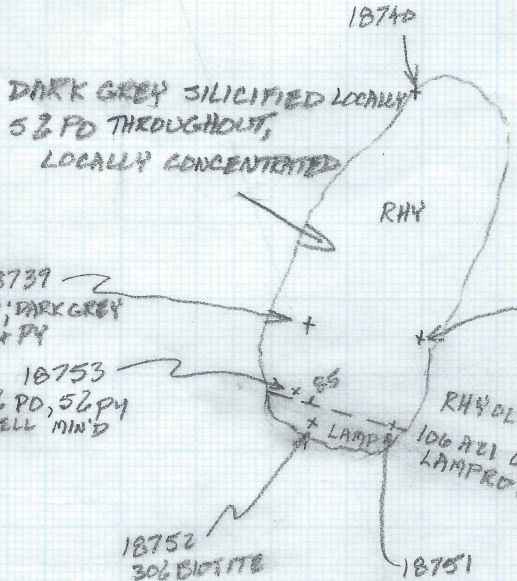 18740
DARK GREY SILICIFIED LOCALLY
5% PO THROUGHOUT,
LOCALLY CONCENTRATED
RHY
8739
; DARK GREY
PY
18753
% PO, 5% PY
ELL MIN'D
85
RHYOL
LAMP
LAMPRO
18752
30% BIOTITE
18751